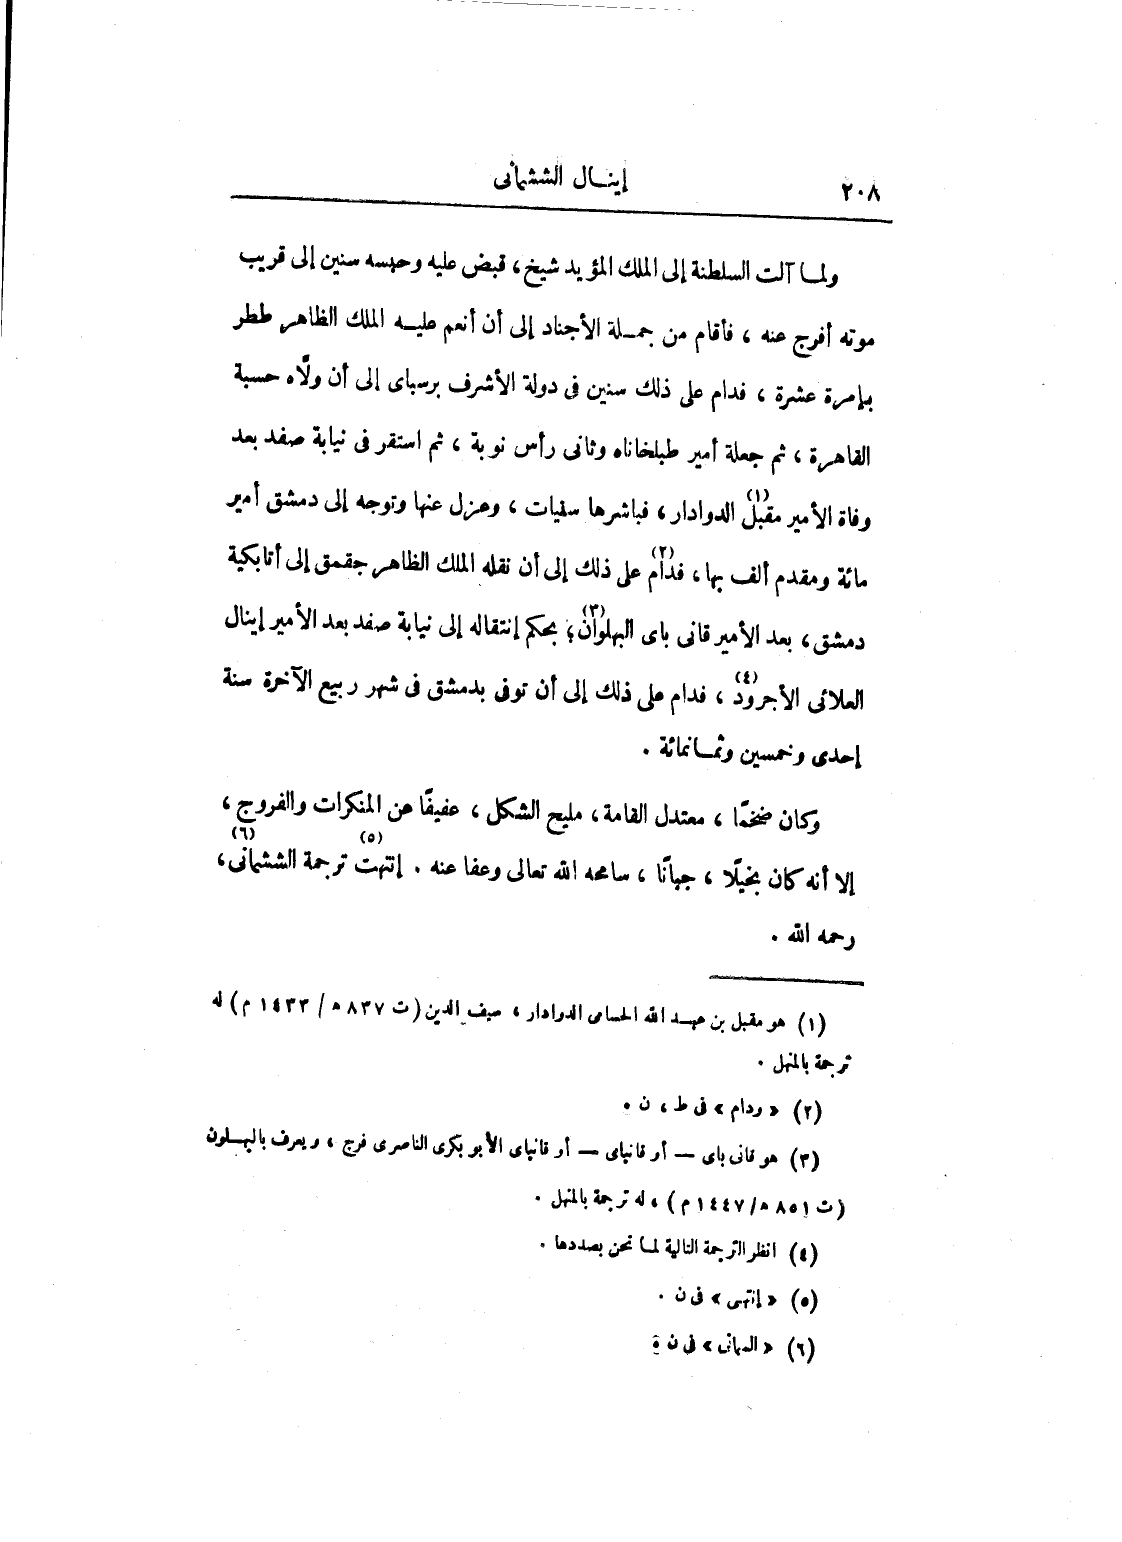 ٢٠٨ إينال الششمانى
ولما آلت السلطنة إلى الملك المؤيد شيخ، قبض عليه وحبسه سنين إلى قريب
موته أفرج عنه ، فأقام من جملة الأجناد إلى أن أنعم عليه الملك الظاهر ططر
بإمرة عشرة ، فدام على ذلك سنين فى دولة الأشرف برسباى إلى أن ولَّاه حسبة
القاهرة ، ثم جعلة أمير طبلخاناه وثانى رأس نوبة ، ثم استقر فى نيابة صفد بعد
وفاة الأمير مقبل (١) الدوادار ، فباشرها سنيات ، وعزل عنها وتوجه إلى دمشق أمير
مائة ومقدم ألف بها ، فدام (٢) على ذلك إلى أن نقله الملك الظاهر جقمق إلى أتابكية
دمشق ، بعد الأمير قانى باى البهلوان (٣) ؛ بحكم إنتقاله إلى نيابة صفد بعد الأمير إينال
العلائى الأجرود (٤) ، فدام على ذلك إلى أن توفى بدمشق فى شهر ربيع الآخرة سنة
إحدى وخمسين وثمانمائة .
وكان ضخمًا ، معتدل القامة ، مليح الشكل ، عفيفًا عن المنكرات والفروج ،
إلا أنه كان بخيلًا ، جبانًا ، سامحه الله تعالى وعفا عنه . إنتهت (٥) ترجمة الششمانى (٦) ،
رحمه الله .
(١) هو مقبل بن عبد الله الحسامى الدوادار ، سيف الدين (ت ٨٣٧ ه / ١٤٣٣ م) له
ترجمة بالمنهل .
(٢) « ودام » فى ط ، ن .
(٣) هو قانى باى — أو قانباى — أو قانباى الأبو بكرى الناصرى فرج ، ويعرف بالبهلون
(ت ٨٥١ ه/ ١٤٤٧ م) ، له ترجمة بالمنهل .
(٤) انظر الترجمة التالية لما نحن بصددها .
(٥) « إنتهى » فى ن .
(٦) « المهانى » فى ن